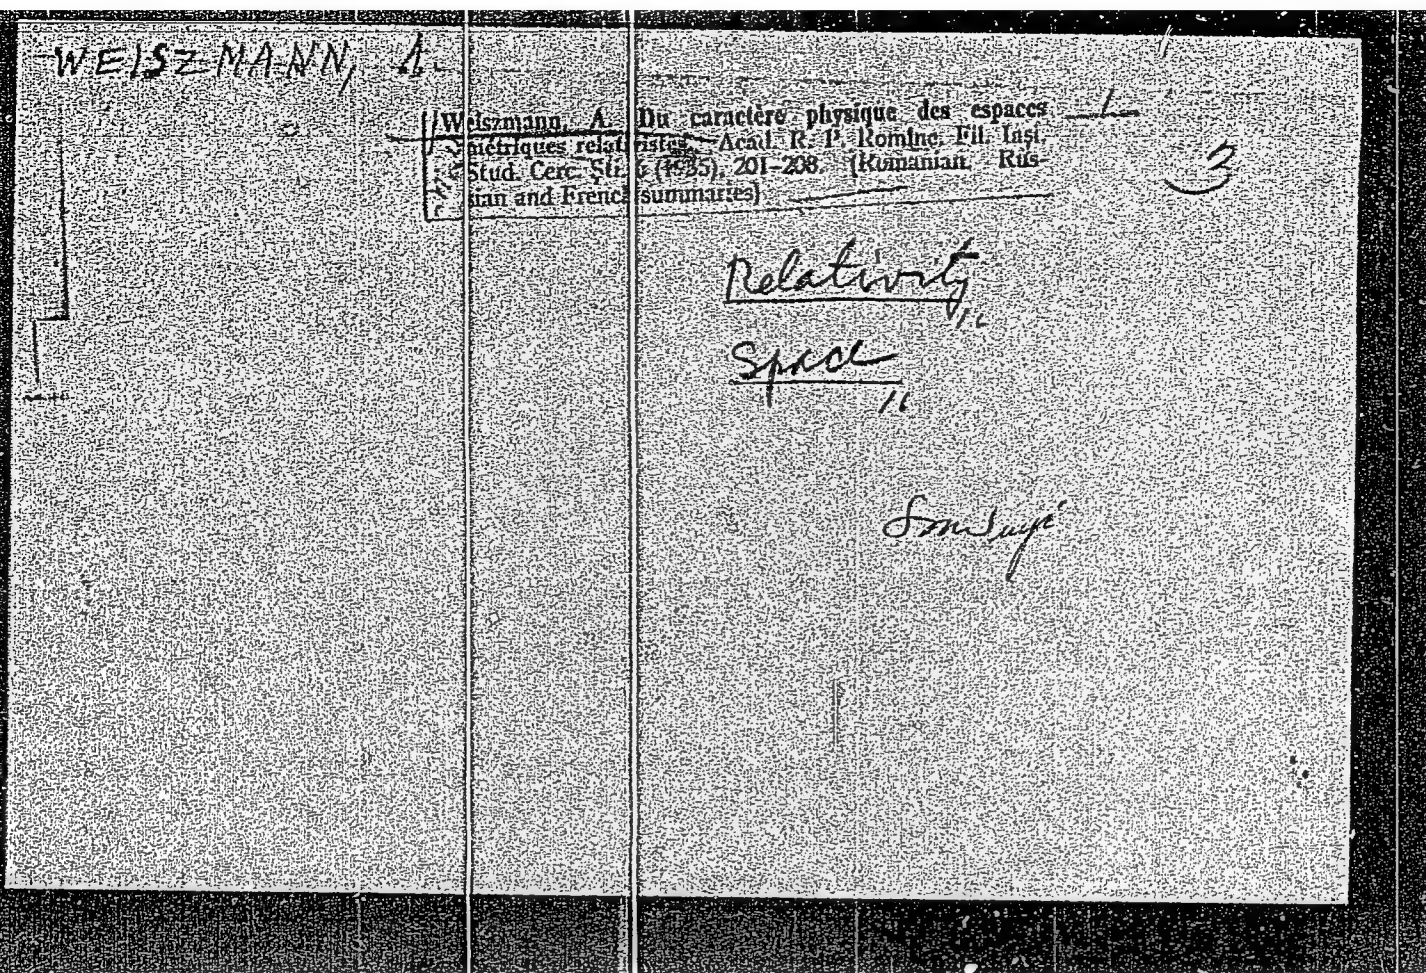 WEISZMANN, A.
Weiszmann, A. Du caractère physique des espaces
métriques relativistes. Acad. R. P. Romîne. Fil. Iaşi.
Stud. Cerc. Şti. 6 (1955), 201–208. (Romanian. Rus-
sian and French summaries)
1
2
Relativity
Space